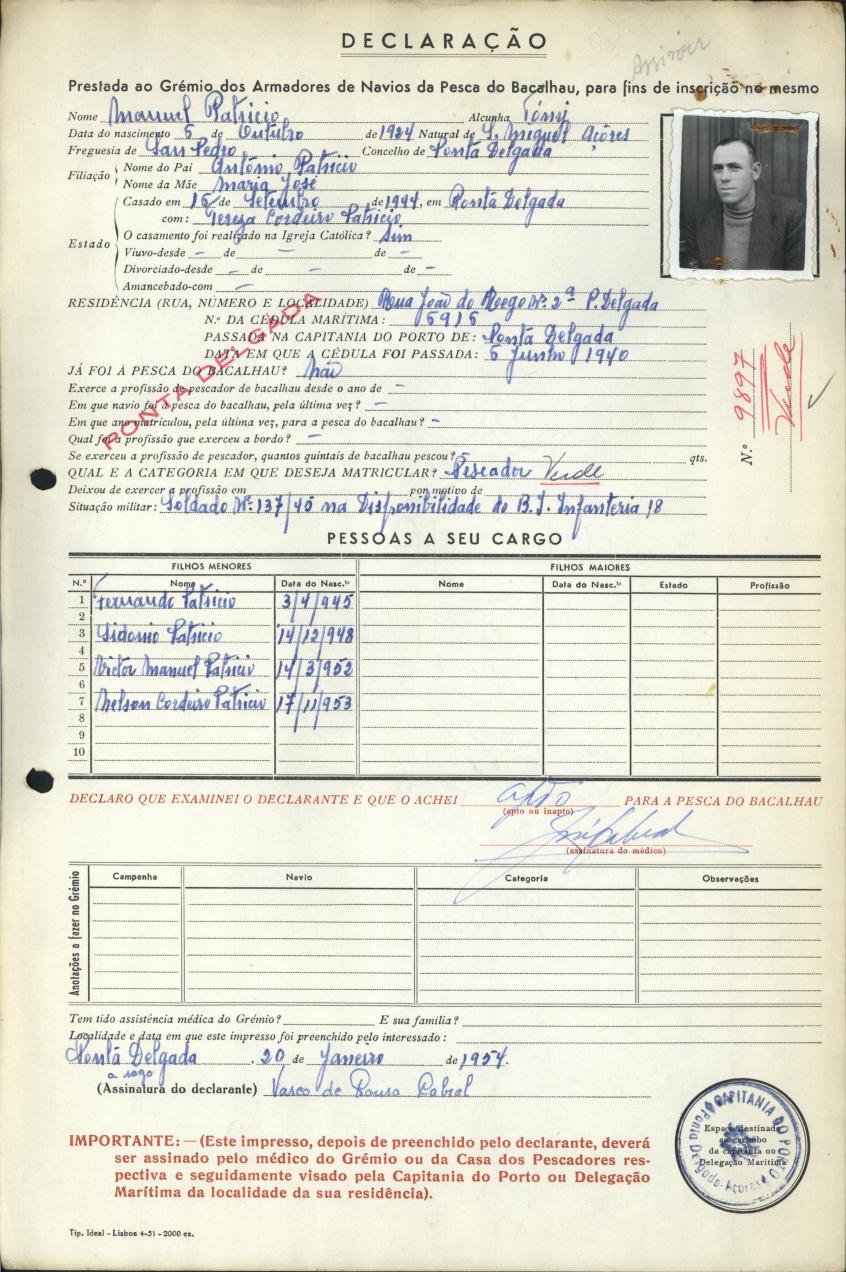 DECLARAÇÃO
Assinar
Prestada ao Grémio dos Armadores de Navios da Pesca do Bacalhau, para fins de inscrição no mesmo
Nome Manuel Patricio Alcunha Tómi
Data do nascimento 5 de Outubro de 1924 Natural de S. Miguel Açores
Freguesia de San Pedro Concelho de Pontã Delgada
Filiação Nome do Pai António Patricio
Nome da Mãe Maria José
Estado Casado em 16 de Setembro de 1944, em Pontã Delgada
com: Tereza Cordeiro Patricio
O casamento foi realizado na Igreja Católica? Sim
Viuvo-desde - de - de -
Divorciado-desde - de - de -
Amancebado-com -
RESIDÊNCIA (RUA, NÚMERO E LOCALIDADE) Rua João do Rego Nº. 2ª P. Delgada
N.º DA CÉDULA MARÍTIMA: 6915
PASSADA NA CAPITANIA DO PORTO DE: Pontã Delgada
DATA EM QUE A CÉDULA FOI PASSADA: 5 Junho 1940
JÁ FOI À PESCA DO BACALHAU? Não
PONTA DELGADA
Exerce a profissão de pescador de bacalhau desde o ano de -
Em que navio foi à pesca do bacalhau, pela última vez? -
Em que ano matriculou, pela última vez, para a pesca do bacalhau? -
Qual foi a profissão que exerceu a bordo? -
Se exerceu a profissão de pescador, quantos quintais de bacalhau pescou? qts.
QUAL E A CATEGORIA EM QUE DESEJA MATRICULAR? Pescador Verde
Deixou de exercer a profissão em por motivo de
Situação militar: Soldado Nº. 137/45 na Disponibilidade do B. I. Infantéria 18
N.º 9897 Verde
PESSOAS A SEU CARGO
FILHOS MENORES FILHOS MAIORES
N.º Nome Data do Nasc.to Nome Data do Nasc.to Estado Profissão
1 Fernando Patricio 3/4/945
2
3 Sidonio Patricio 14/12/948
4
5 Victor Manuel Patricio 14/3/952
6
7 Nelson Cordeiro Patricio 17/11/953
8
9
10
DECLARO QUE EXAMINEI O DECLARANTE E QUE O ACHEI apto PARA A PESCA DO BACALHAU
(apto ou inapto)
(assinatura do médico)
Anotações a fazer no Grémio
Campanha Navio Categoria Observações
Tem tido assistência médica do Grémio? E sua família?
Localidade e data em que este impresso foi preenchido pelo interessado:
Pontã Delgada, 20 de Janeiro de 1954.
a rogo
(Assinatura do declarante) Vasco de Sousa Cabral
CAPITANIA DO PORTO
Ponta Delgada - Açores
Espaço destinado
ao carimbo
da capitania ou
Delegação Marítima
IMPORTANTE: — (Este impresso, depois de preenchido pelo declarante, deverá
ser assinado pelo médico do Grémio ou da Casa dos Pescadores res-
pectiva e seguidamente visado pela Capitania do Porto ou Delegação
Marítima da localidade da sua residência).
Tip. Ideal - Lisboa 4-51 - 2000 ex.